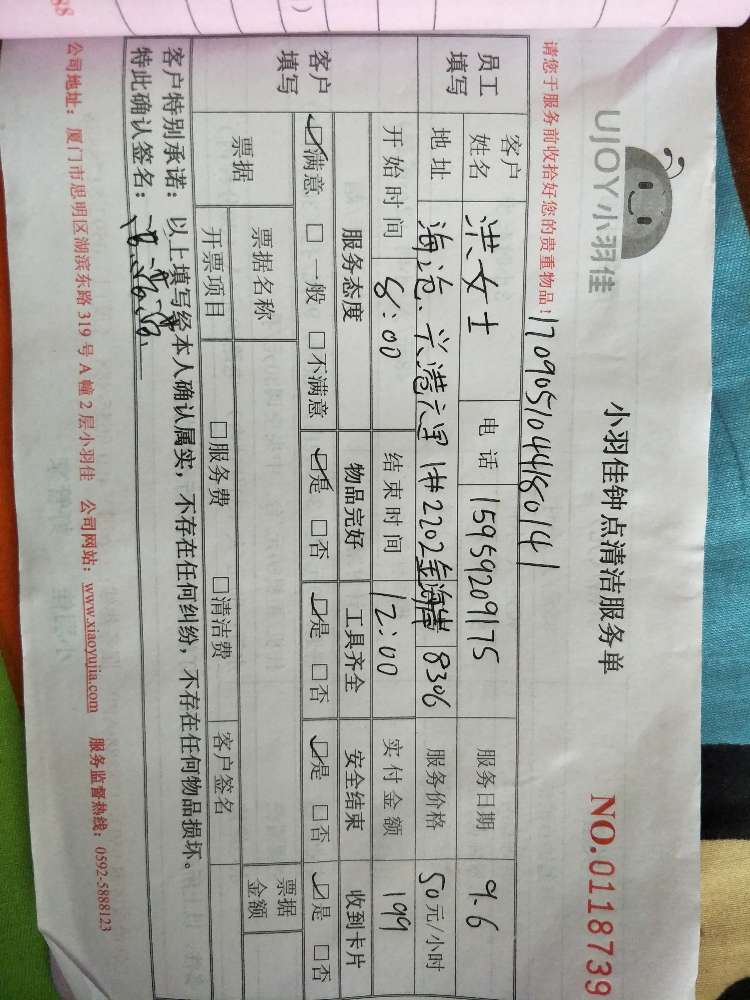 UJOY小羽佳
小羽佳钟点清洁服务单
NO.0118739
请您于服务前收拾好您的贵重物品！
17090510448014 1
员工填写 客户姓名 洪女士 电话 15959209175 服务日期 9.6
地址 海沧、兴港六里 1#2202 8306 服务价格 50元/小时
开始时间 8:00 结束时间 12:00 实付金额 199
客户填写 服务态度 物品完好 工具齐全 安全结束 收到卡片
☑满意 □一般 □不满意 ☑是 □否 ☑是 □否 ☑是 □否 ☑是 □否
票据 票据名称 票据金额
开票项目 □服务费 □清洁费 客户签名
客户特别承诺：以上填写经本人确认属实，不存在任何纠纷，不存在任何物品损坏。
特此确认签名：
公司地址：厦门市思明区湖滨东路 319 号 A 幢 2 层小羽佳 公司网站：www.xiaoyujia.com 服务监督热线：0592-5888123
88